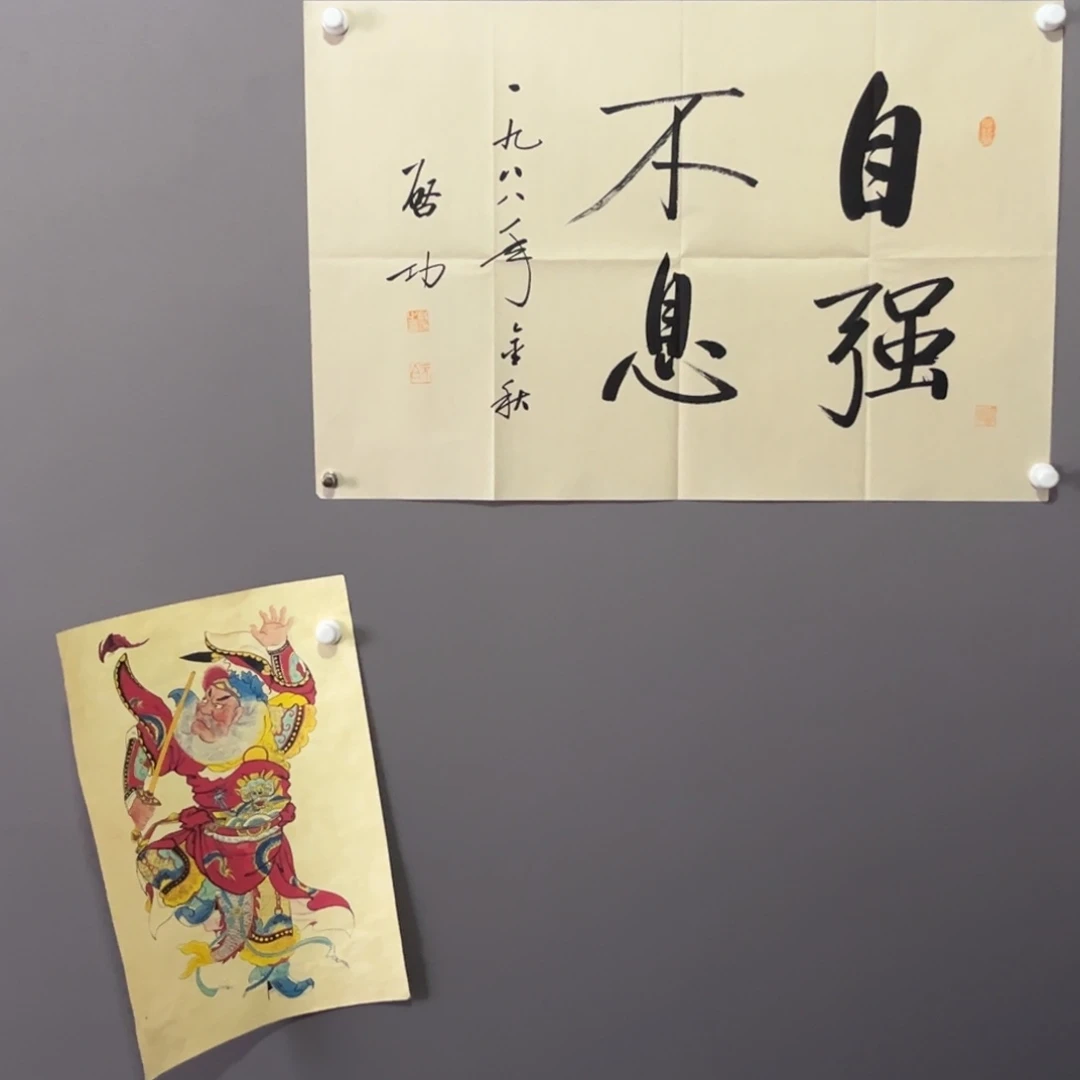 自强
不息
一九八八年金秋
启功